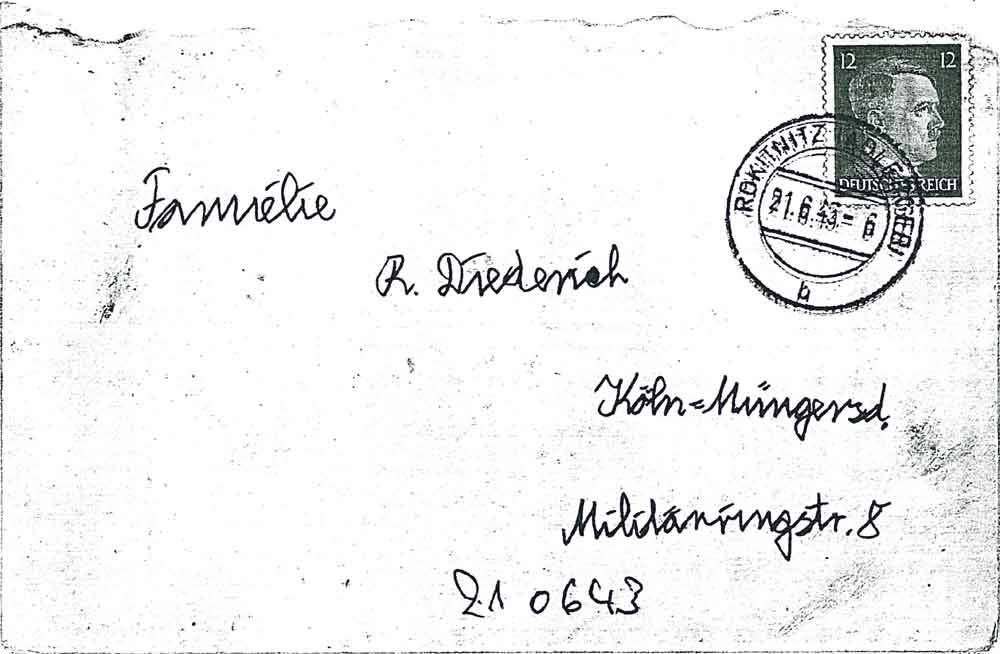 12 12
DEUTSCHES REICH
ROKITNITZ
21.6.43-6
b
Familie
R. Diederich
Köln=Müngersd.
Militärringstr. 8
210643